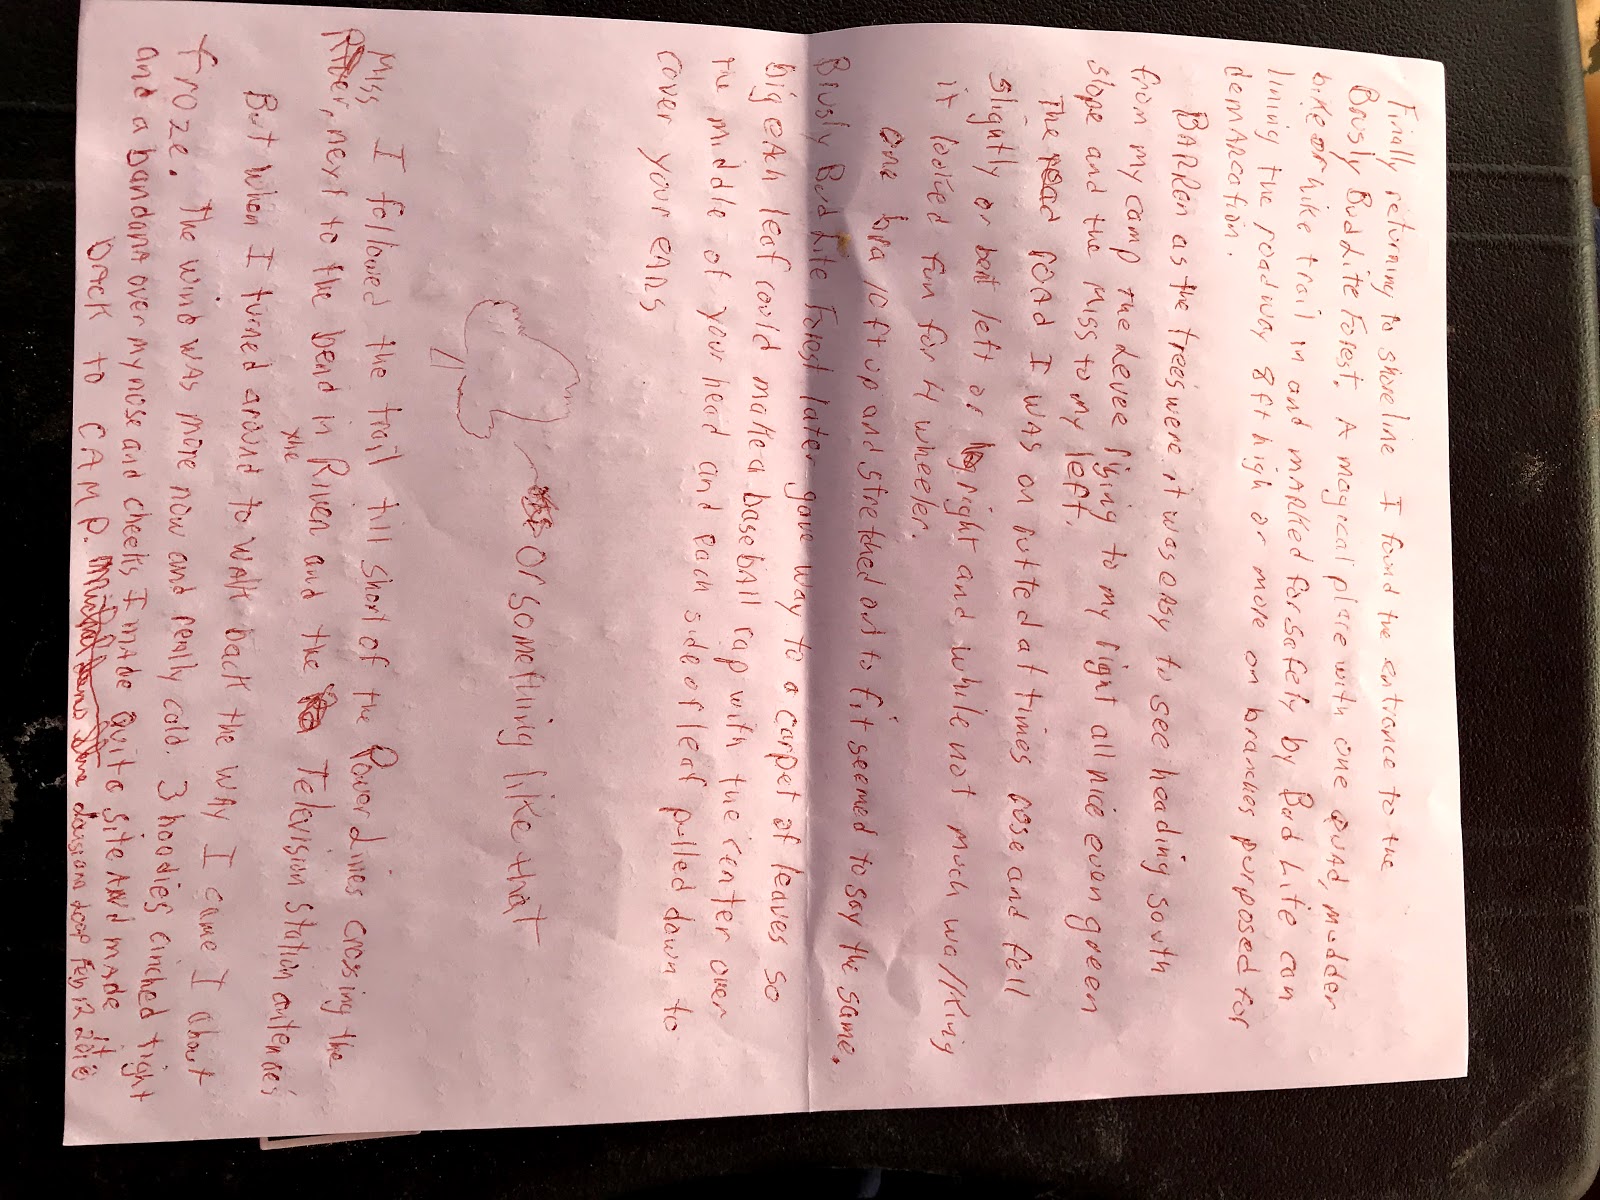 Finally returning to shoreline I found the entrance to the
Brusly Bud Lite Forest. A magical place with one quad, mudder
bike or hike trail in and mARKed for safety by Bud Lite can
lining the roadway 8 ft high or more on branches purposed for
demARCation.
BARRen as the trees were it was eAsy to see heading south
from my camp the Levee lying to my right all nice even green
slope and the Miss to my left.
The road I wAs on rutted at times rose and fell
slightly or bent left or right and while not much walking
it looked fun for 4 wheeler.
One bra 10 ft up and stretched out to fit seemed to say the same.
Brusly Bud Lite Forest later gave way to a carpet of leaves so
big eAch leaf could make a baseball cap with the center over
the middle of your head and each side of leaf pulled down to
cover your eARs
Or something like that
I followed the trail till short of the Power Lines crossing the
Miss River, next to the bend in River and the Television station antennas
But when I turned around to walk back the wAy I came I about
froze. The wind wAs more now and really cold. 3 hoodies cinched tight
and a bandana over my nose and cheeks I mAde Quito site AND mADe it
back to CAMP.
Feb 12 2018